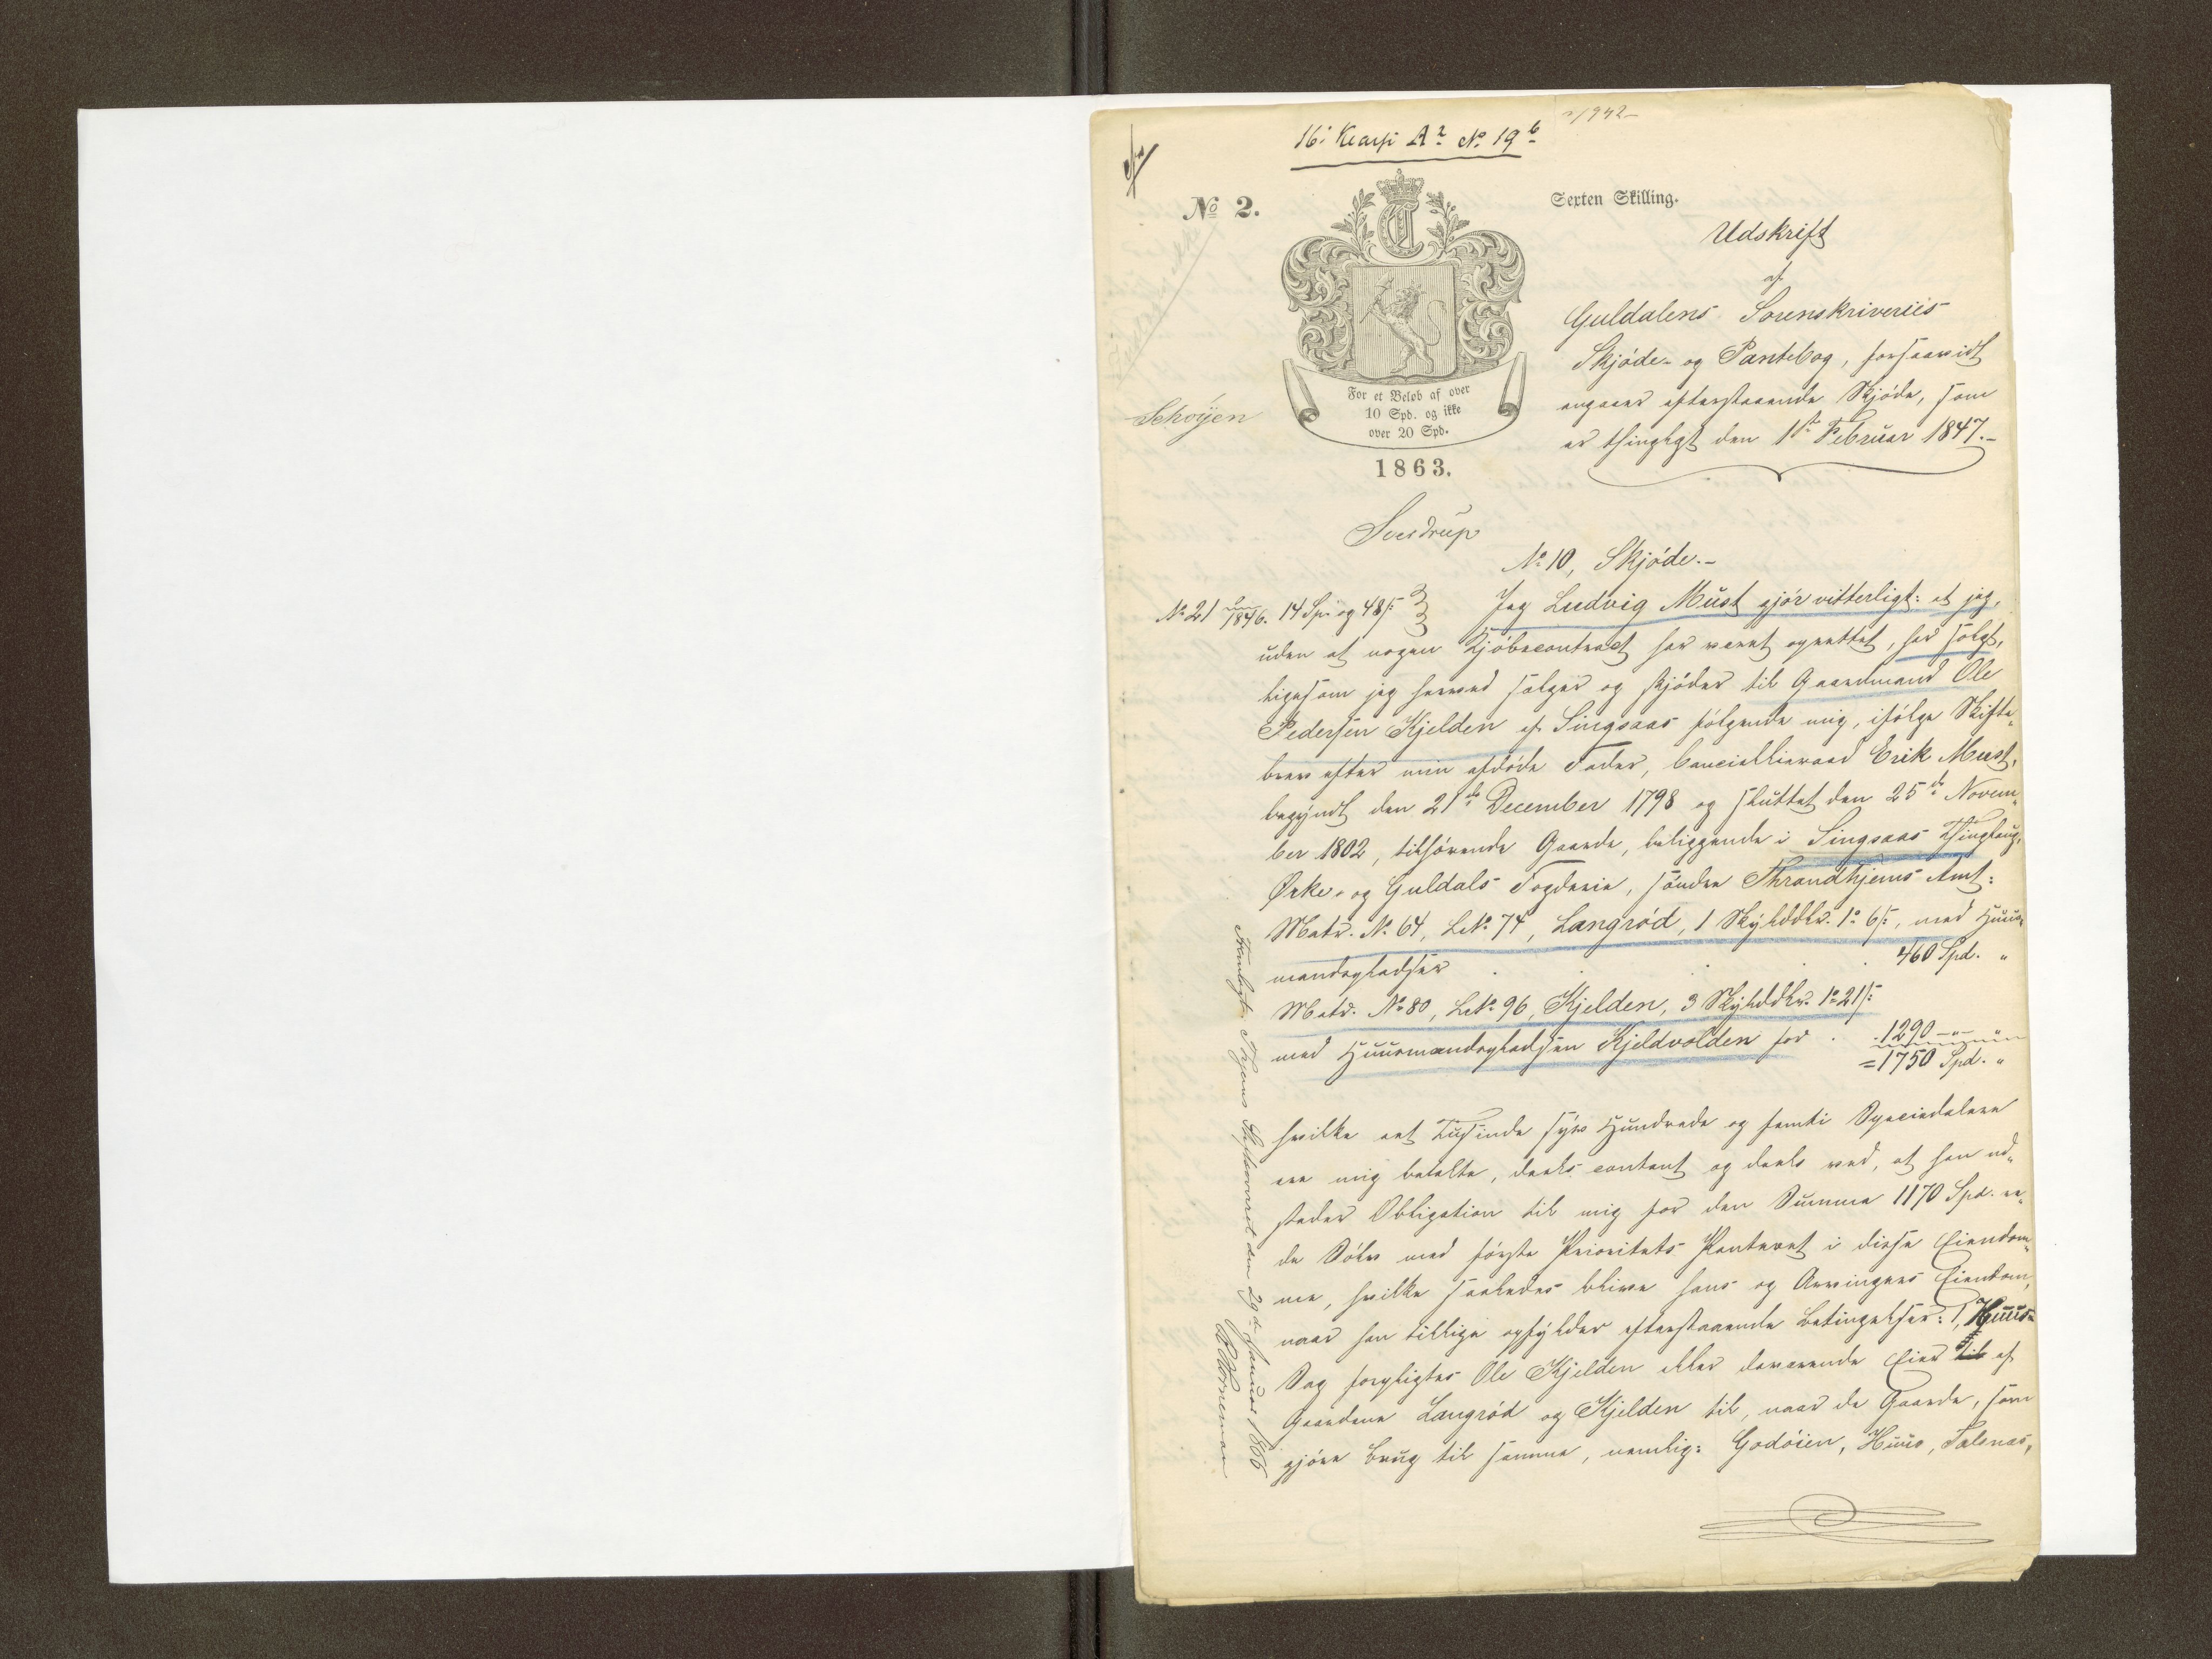 1942
16: Kasse A2 No 19b
No 2.
Sexten Skilling.
Udskrift
af
Guldalens Sorenskriveries
Skjöde- og Pantebog, forsaavidt
angaaer efterstaaende Skjöde, som
er thinglyst den 1ste Februar 1847.-
Schøyen
For et Beløb af over
10 Spd. og ikke
over 20 Spd.
1863.
Sverdrup
No 10, Skjöde.-
No 21 1846. 14 Sp. og 48 s:
Jeg Ludvig Must gjör vitterligt: at jeg,
uden at nogen Kjöbecontract har været oprettet, har solgt,
ligesom jeg herved sælger og skjöder til Gaardmand Ole
Pedersen Kjelden af Singsaas følgende mig, ifölge Skifte„
brev efter min afdöde Fader, Cancelliraad Erik Must,
begyndt den 21de December 1798 og sluttet den 25de Novem„
ber 1802, tilhörende Gaarde, beliggende i Singsaas Thinglaug,
Orke- og Guldals Fogderie, söndre Throndhjems Amt:
Matr. No 64, L.No 74, Langröd, 1 Skylddlr. 1o 6 s:, med Huus„
mandspladser . . . . 460 Spd. „
Matr. No 80, L.No 96, Kjelden, 3 Skylddlr. 1o 21 s:
med Huusmandspladsen Kjeldvolden for . . 1290 -„- „
= 1750 Spd. „
hvilke eet Tusinde syv Hundrede og femti Speciedalere
ere mig betalte, deels contant og deels ved, at han ud„
steder Obligation til mig for den Summa 1170 Spd. re„
de Sölv med förste Prioritets Panteret i disse Eiendom„
me, hvilke saaledes blive hans og Arvingers Eiendom,
naar han tillige opfylder efterstaaende Betingelser: 1, Huus„
Dog forpligtes Ole Kjelden eller derværende Eier til af
Gaardene Langröd og Kjelden til, naar de Gaarde, som
gjöre Brug til samme, nemlig: Godöien, Huus, Talsnæs,
Fremlagt i Thjems Stiftsoverret den 29de Januar 1866
Hornemann